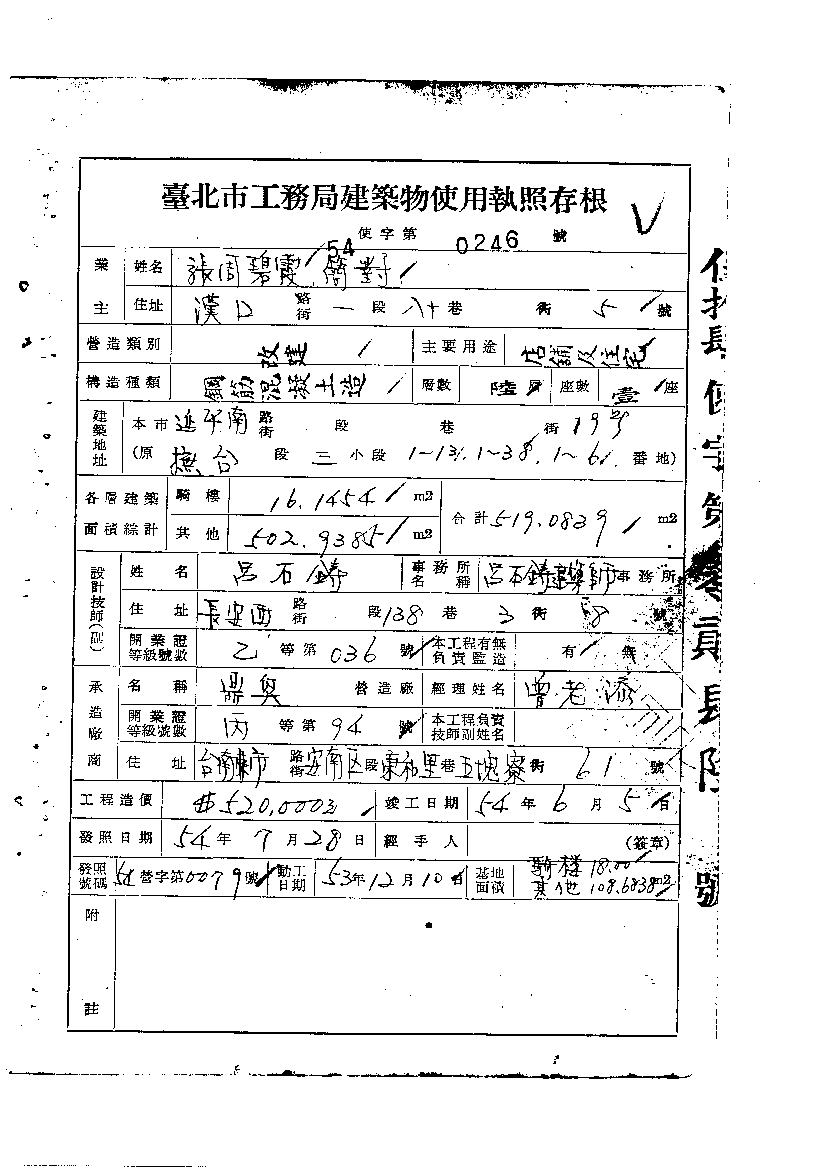 臺北市工務局建築物使用執照存根
V
54 使字第 0246 號
業主 姓名 張周碧霞 簡對
住址 漢口 路街 一 段 八十 巷 街 5 號
營造類別 改建 主要用途 店舖及住宅
構造種類 鋼筋混凝土造 層數 陸 層 座數 壹 座
建築地址 本市 延平南 路街 段 巷 街 19號
(原 撫台 段 三 小段 1~13, 1~38, 1~61 番地)
各層建築面積綜計 騎樓 16.1454 m2 合計 519.0839 m2
其他 502.9385 m2
設計技師(副) 姓名 呂石鑄 事務所名稱 呂石鑄建築師 事務所
住址 長安西 路街 段 138 巷 3 街 8 號
開業證等級號數 乙 等第 036 號 本工程有無負責監造 有 無
承造廠商 名稱 鼎奧 營造廠 經理姓名 曾老添
開業證等級號數 丙 等第 94 號 本工程負責技師副姓名
住址 台南市 路街 安南区 段 東和里 巷 五塊寮 街 61 號
工程造價 $520,000 竣工日期 54 年 6 月 5 日
發照日期 54 年 7 月 28 日 經手人 (簽章)
發照號碼 54 營字第 0079 號 動工日期 53 年 12 月 10 日 基地面積 騎樓 18.00 其他 108.6838 m2
附註
使字第零貳
號